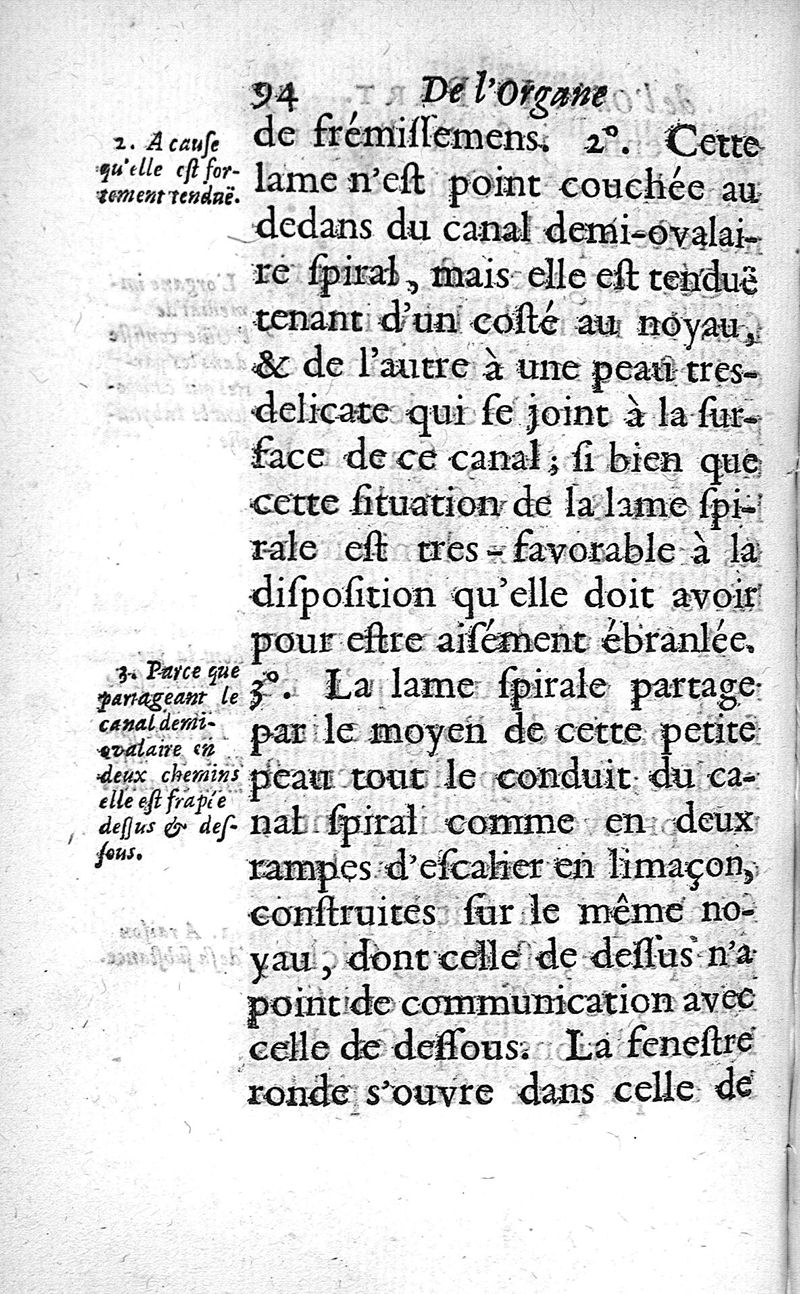 94 De l'Organe
2. A cause
qu'elle eſt for-
tement tenduë.
de frémiſſemens. 2°. Cette
lame n'eſt point couchée au
dedans du canal demi-ovalai-
re ſpiral, mais elle eſt tenduë
tenant d'un coſté au noyau,
& de l'autre à une peau tres-
delicate qui ſe joint à la ſur-
face de ce canal; ſi bien que
cette ſituation de la lame ſpi-
rale eſt tres-favorable à la
diſpoſition qu'elle doit avoir
pour eſtre aiſément ébranlée.
3. Parce que
partageant le
canal demi-
ovalaire en
deux chemins
elle eſt frapée
deſſus & deſ-
ſous.
3°. La lame ſpirale partage
par le moyen de cette petite
peau tout le conduit du ca-
nal ſpiral comme en deux
rampes d'eſcalier en limaçon,
conſtruites ſur le même no-
yau, dont celle de deſſus n'a
point de communication avec
celle de deſſous. La feneſtre
ronde s'ouvre dans celle de